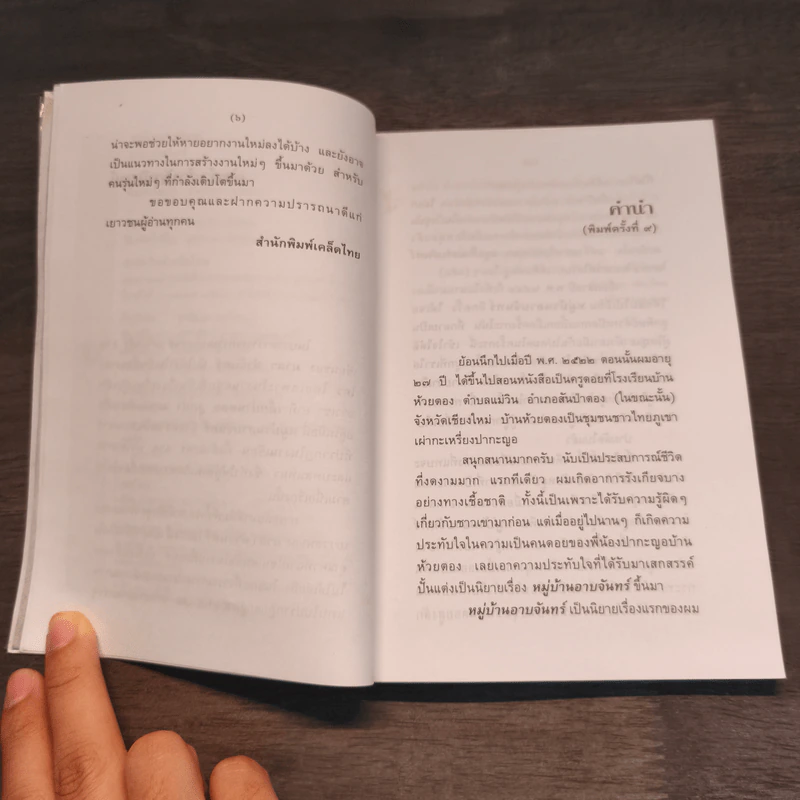 (๖)
น่าจะพอช่วยให้หายอยากงานใหม่ลงได้บ้าง และยังอาจ
เป็นแนวทางในการสร้างงานใหม่ๆ ขึ้นมาด้วย สำหรับ
คนรุ่นใหม่ๆ ที่กำลังเติบโตขึ้นมา
ขอขอบคุณและฝากความปรารถนาดีแก่
เยาวชนผู้อ่านทุกคน
สำนักพิมพ์เคล็ดไทย
คำนำ
(พิมพ์ครั้งที่ ๙)
ย้อนนึกไปเมื่อปี พ.ศ. ๒๕๒๒ ตอนนั้นผมอายุ
๒๗ ปี ได้ขึ้นไปสอนหนังสือเป็นครูดอยที่โรงเรียนบ้าน
ห้วยตอง ตำบลแม่วิน อำเภอสันป่าตอง (ในขณะนั้น)
จังหวัดเชียงใหม่ บ้านห้วยตองเป็นชุมชนชาวไทยภูเขา
เผ่ากะเหรี่ยงปากะญอ
สนุกสนานมากครับ นับเป็นประสบการณ์ชีวิต
ที่งดงามมาก แรกทีเดียว ผมเกิดอาการรังเกียจบาง
อย่างทางเชื้อชาติ ทั้งนี้เป็นเพราะได้รับความรู้ผิดๆ
เกี่ยวกับชาวเขามาก่อน แต่เมื่ออยู่ไปนานๆ ก็เกิดความ
ประทับใจในความเป็นคนดอยของพี่น้องปากะญอบ้าน
ห้วยตอง เลยเอาความประทับใจที่ได้รับมาเสกสรรค์
ปั้นแต่งเป็นนิยายเรื่อง หมู่บ้านอาบจันทร์ ขึ้นมา
หมู่บ้านอาบจันทร์ เป็นนิยายเรื่องแรกของผม